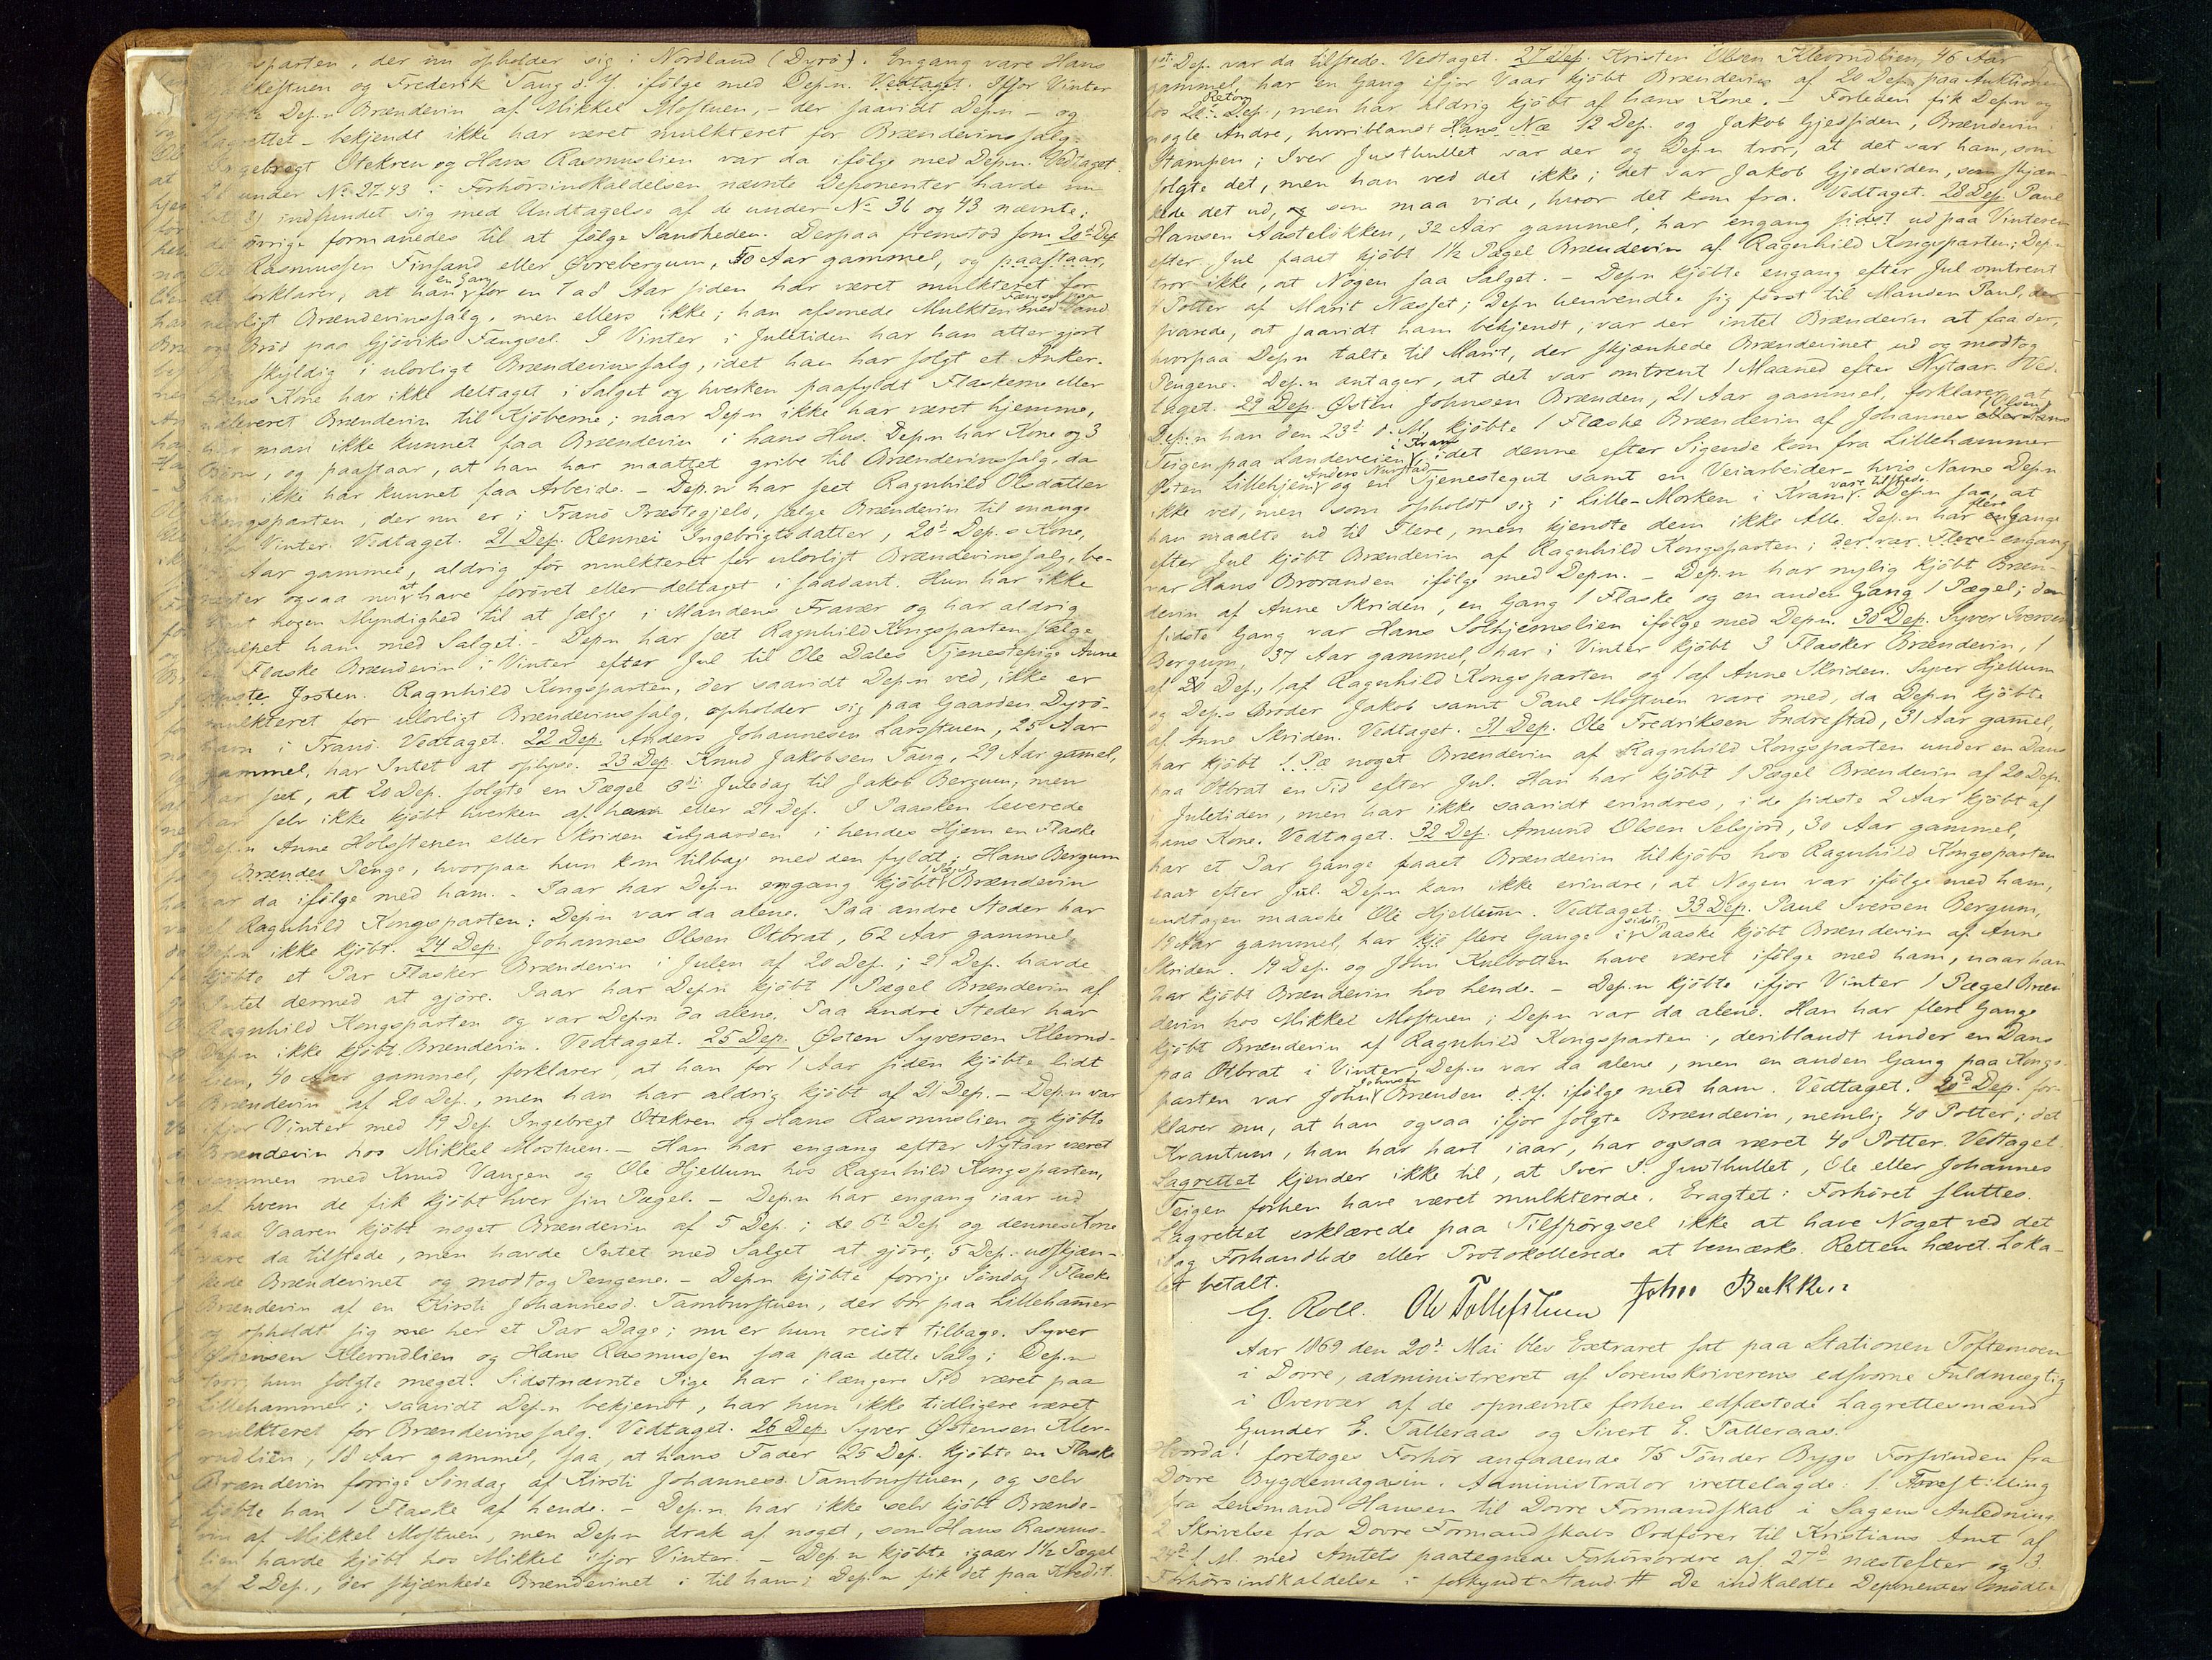 sparten, der nu opholder sig i Nordland (Dyrö). Engang vare Hans
og Frederik Taug d. Y. ifölge med Dep.n. Vedtaget. Ifjor Vinter
Dep.n Brændevin af Mikkel Mostuen, - der saavidt Dep.n - og
Lagrettet - bekjendt ikke har været mulkteret for Brændevinssalg.
Ingebregt Otekren og Hans Rasmuslien var da ifölge med Dep.n. Vedtaget.
De under No 27-43 i Forhörsindkaldelsen nævnte Deponenter havde nu
indfundet sig med Undtagelse af de under No 36 og 43 nævnte;
de övrige formanedes til at fölge Sandheden. Derpaa fremstod som 20de Dep.
Ole Rasmussen Finsand eller Øvrebergum, 50 Aar gammel, og paastaar,
at forklarer, at han en Gang for en 7 a 8 Aar siden har været mulkteret for
ulovligt Brændevinssalg, men ellers ikke; han afsonede Mulkten med Fængsel paa Vand
og Bröd paa Gjöviks Fængsel. I Vinter i Juletiden har han atter gjort
skyldig i ulovligt Brændevinssalg, idet han har solgt et Anker.
Hans Kone har ikke deltaget i Salget og hverken paafyldt Flaskerne eller
udleveret Brændevin til Kjöberne; naar Dep.n ikke har været hjemme,
har man ikke kunnet faa Brændevin i hans Hus. Dep.n har Kone og 3
Börn, og paastaar, at han har maattet gribe til Brændevinssalg, da
han ikke har kunnet faa Arbeide. - Dep.n har seet Ragnhild Olsdatter
Kongsparten, der nu er i Tranö Præstegjeld, sælge Brændevin til mange
Vinter. Vedtaget. 21 Dep. Rennei Ingebrigtsdatter, 20de Dep.s Kone,
Aar gammel, aldrig för mulkteret for ulovligt Brændevinssalg, be-
nægter ogsaa nu at have forövet eller deltaget i saadant. Hun har ikke
havt nogen Myndighed til at sælge i Mandens Fravær og har aldrig
hjulpet ham med Salget. - Dep.n har seet Ragnhild Kongsparten sælge
en Flaske Brændevin i Vinter efter Jul til Ole Dales Tjenestepige Anne
Josten. Ragnhild Kongsparten, der saavidt Dep.n ved, ikke er
mulkteret for ulovligt Brændevinssalg, opholder sig paa Gaarden Dyrö-
havn i Tranö. Vedtaget. 22 Dep. Anders Johannesen Larsstuen, 25 Aar
gammel, har Intet at oplyse. 23 Dep. Knud Jakobsen Taug, 29 Aar gamel,
har seet, at 20 Dep. solgte en Pægel 3di Juledag til Jakob Bergum; men
har selv ikke kjöbt hverken af ham eller 21 Dep. I Paasken leverede
Dep.n Anne Holsstenen eller Skriden udgaarden i hendes Hjem en Flaske
og Brændev Penge, hvorpaa hun kom tilbage med den fyldt; Hans Bergum
var da ifölge med ham. - Iaar har Dep.n engang kjöbt 1 Pægel Brændevin
af Ragnhild Kongsparten; Dep.n var da alene. Paa andre Steder har
Dep.n ikke kjöbt. 24 Dep. Johannes Olsen Otbrat, 62 Aar gammel
kjöbte et Par Flasker Brændevin i Julen af 20 Dep.; 21 Dep. havde
Intet dermed at gjöre. Iaar har Dep.n kjöbt 1 Pægel Brændevin af
Ragnhild Kongsparten og var Dep.n da alene. Paa andre Steder har
Dep.n ikke kjöbt Brændevin. Vedtaget. 25 Dep. Østen Syversen Klevrud-
lien, 40 Aar gammel, forklarer, at han for 1 Aar siden kjöbte lidt
Brændevin af 20 Dep., men han har aldrig kjöbt af 21 Dep. - Dep.n var
ifjor Vinter med 19 Dep. Ingebregt Otekren og Hans Rasmuslien og kjöbte
Brændevin hos Mikkel Mostuen. - Han har engang efter Nytaar været
sammen med Knud Vangen og Ole Hjellum hos Ragnhild Kongsparten,
af hvem de fik kjöbt hver sin Pægel. - Dep.n har engang iaar ud
paa Vaaren kjöbt noget Brændevin af 5 Dep.; de 6te Dep og dennes Kone
vare da tilstede, men havde Intet med Salget at gjöre, 5 Dep. udskjæn-
kede Brændevinet og modtog Pengene. - Dep.n kjöbte forrige Söndag 1 Flaske
Brændevin af en Kirsti Johannesd. Tamburstuen, der bor paa Lillehamer
og opholdt sig her et Par Dage; nu er hun reist tilbage. Syver
Østensen Klevrudlien og Hans Rasmussen saa paa dette Salg; Dep.n
tror hun solgte meget. Sidstnævnte Pige har i længere Tid været paa
Lillehammer; saavidt Dep.n bekjendt, har hun ikke tidligere været
mulkteret for Brændevinssalg. Vedtaget. 26 Dep. Syver Østensen Klev-
rudlien, 18 Aar gammel, saa, at hans Fader 25 Dep. kjöbte en Flaske
Brændevin forrige Söndag af Kirsti Johannesd. Tamburstuen, og selv
kjöbte han 1 Flaske af hende. - Dep.n har ikke selv kjöbt Brænde-
vin af Mikkel Mostuen, men Dep.n drak af noget, som Hans Rasmus-
lien havde kjöbt hos Mikkel ifjor Vinter. - Dep.n kjöbte igaar 1½ Pægel
af 2 Dep., der skjænkede Brændevinet i til ham; Dep.n fik det paa Kredit.
1ste Dep. var da tilstede. Vedtaget. 27 Dep. Kristen Olsen Klevrudlien, 46 Aar
gammel, har en Gang ifjor Vaar kjöbt Brændevin af 20 Dep. paa Auktionen
hos 20 Dep., men har aldrig kjöbt af hans Kone. - Forleden fik Dep.n og
nogle Andre, hvoriblandt Hans Næ 12 Dep. og Jakob Gjedsiden, Brændevin i
Stampen; Iver Justhullet var der og Dep.n tror, at det var ham, som
solgte det, men han ved det ikke; det var Jakob Gjedsiden, som skjæn-
kede det ud, og som maa vide, hvor det kom fra. Vedtaget. 28 Dep. Paul
Hansen Aastelökken, 32 Aar gammel, har engang sidst ud paa Vinteren
efter Jul faaet kjöbt 1½ Pægel Brændevin af Ragnhild Kongsparten; Dep.n
tror ikke, at Nogen saa Salget. - Dep.n kjöbte engang efter Jul omtrent
Potter af Marit Næsset; Dep.n henvendte sig först til Manden Paul, der
svarede, at saavidt ham bekjendt, var der intet Brændevin at faa der,
hvorpaa Dep.n talte til Marit, der skjænkede Brændevinet ud og modtog
Pengene. Dep.n antager, at det var omtrent 1 Maaned efter Nytaar. Ved-
taget. 29 Dep. Østen Johnsen Brænden, 21 Aar gammel, forklarer, at
Dep.n han den 23de d. M. kjöbte 1 Flaske Brændevin af Johannes Olsen
Teigen paa Landeveien i Kram, idet denne efter Sigende kom fra Lillehammer
Østen Lillehjem, Anders Nurstad og en Tjenestegut samt en Veiarbeider - hvis Navne Dep.n
ikke ved, men som opholdt sig i Lille-Morken i Kram vare tilstede. Dep.n saa, at
han maalte ud til Flere, men kjendte dem ikke Alle. Dep.n har flere Gange
efter Jul kjöbt Brændevin af Ragnhild Kongsparten; der var Flere engang
var Hans Broranden ifölge med Dep.n. - Dep.n har nylig kjöbt Bræn-
devin af Anne Skriden, en Gang 1 Flaske og en anden Gang 1 Pægel; den
sidste Gang var Hans Solhjemslien ifölge med Dep.n. 30 Dep. Syver Iversen
Bergum, 37 Aar gammel, har i Vinter kjöbt 3 Flasker Brændevin, 1
af 20 Dep., 1 af Ragnhild Kongsparten og 1 af Anne Skriden. Syver Hjellum
og Dep.s Broder Jakob samt Paul Mostuen vare med, da Dep.n kjöbte
af Anne Skriden. Vedtaget. 31 Dep. Ole Fredriksen Endrestad, 31 Aar gamel,
har kjöbt 1 Pæ noget Brændevin af Ragnhild Kongsparten under en Dans
paa Otbrat en Tid efter Jul. Han har kjöbt 1 Pægel Brændevin af 20 Dep.
i Juletiden, men har ikke saavidt erindres, i de sidste 2 Aar kjöbt af
hans Kone. Vedtaget. 32 Dep. Amund Olsen Selsjord, 30 Aar gammel,
har et Par Gange faaet Brændevin tilkjöbs hos Ragnhild Kongsparten
iaar efter Jul. Dep.n kan ikke erindre, at Nogen var ifölge med ham,
undtagen maaske Ole Hjellum. Vedtaget. 33 Dep. Paul Iversen Bergum,
19 Aar gammel, har kjö flere Gange i sidst Paaske kjöbt Brændevin af Anne
Skriden. 19 Dep. og John Knebotten have været ifölge med ham, naar han
har kjöbt Brændevin hos hende. - Dep.n kjöbte ifjor Vinter 1 Pægel Bræn-
devin hos Mikkel Mostuen; Dep.n var da alene. Han har flere Gange
kjöbt Brændevin af Ragnhild Kongsparten, deriblandt under en Dans
paa Otbrat i Vinter; Dep.n var da alene, men en anden Gang paa Kongs-
parten var John Johnsen Brænden d. Y. ifölge med ham. Vedtaget. 20de Dep. for-
klarer nu, at han ogsaa ifjor solgte Brændevin, nemlig 40 Potter; det
Kvantum, han har havt iaar, har ogsaa været 40 Potter. Vedtaget.
Lagrettet kjender ikke til, at Iver S. Justhullet, Ole eller Johannes
Teigen forhen have været mulkterede. Eragtet: Forhöret sluttes.
Lagrettet erklærede paa Tilspörgsel ikke at have Noget ved det
idag Forhandlede eller Protokollerede at bemærke. Retten hævet. Loka-
let betalt.
G. Roll. Ole Tollefstuen John Bakken
Aar 1869 den 20de Mai blev Extraret sat paa Stationen Toftemoen
i Dovre, administreret af Sorenskriverens edsvorne Fuldmægtig
i Overvær af de opnævnte forhen edfæstede Lagrettesmænd
Gunder E. Talleraas og Sivert E. Talleraas.
Hvorda! foretoges Forhör angaaende 75 Tönder Bygs Forsvinden fra
Dovre Bygdemagasin. Administrator irettelagde: 1. Forestilling
fra Lensmand Hansen til Dovre Formandskab i Sagens Anledning.
2 Skrivelse fra Dovre Formandskabs Ordförer til Kristians Amt af
24de f. M. med Amtets paategnede Forhörsordre af 27de næstefter og 3.
Forhörsindkaldelse i forkyndt Stand # De indkaldte Deponenter mödte